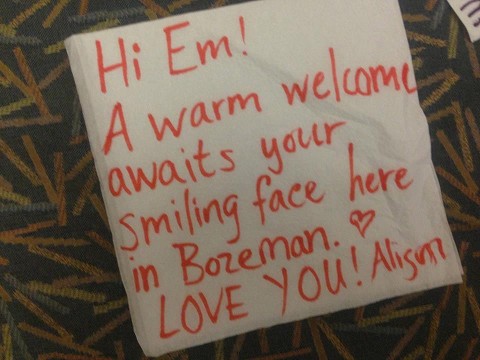 Hi Em!
A warm welcome
awaits your
smiling face here
in Bozeman. ♡
LOVE YOU! Alison